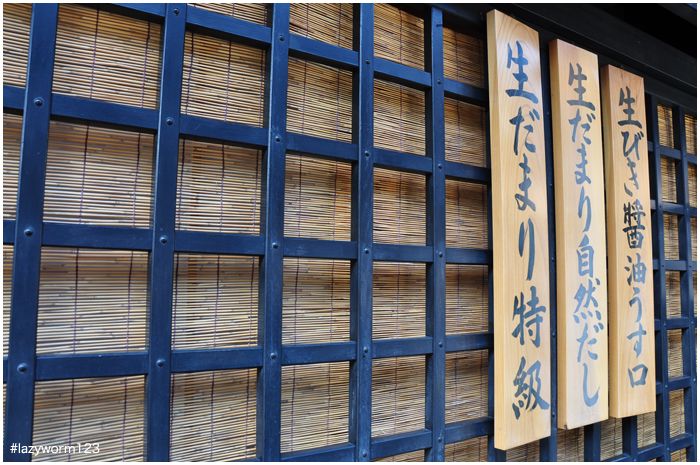 生だまり特級
生だまり自然だし
生びき醤油うす口
#lazyworm123